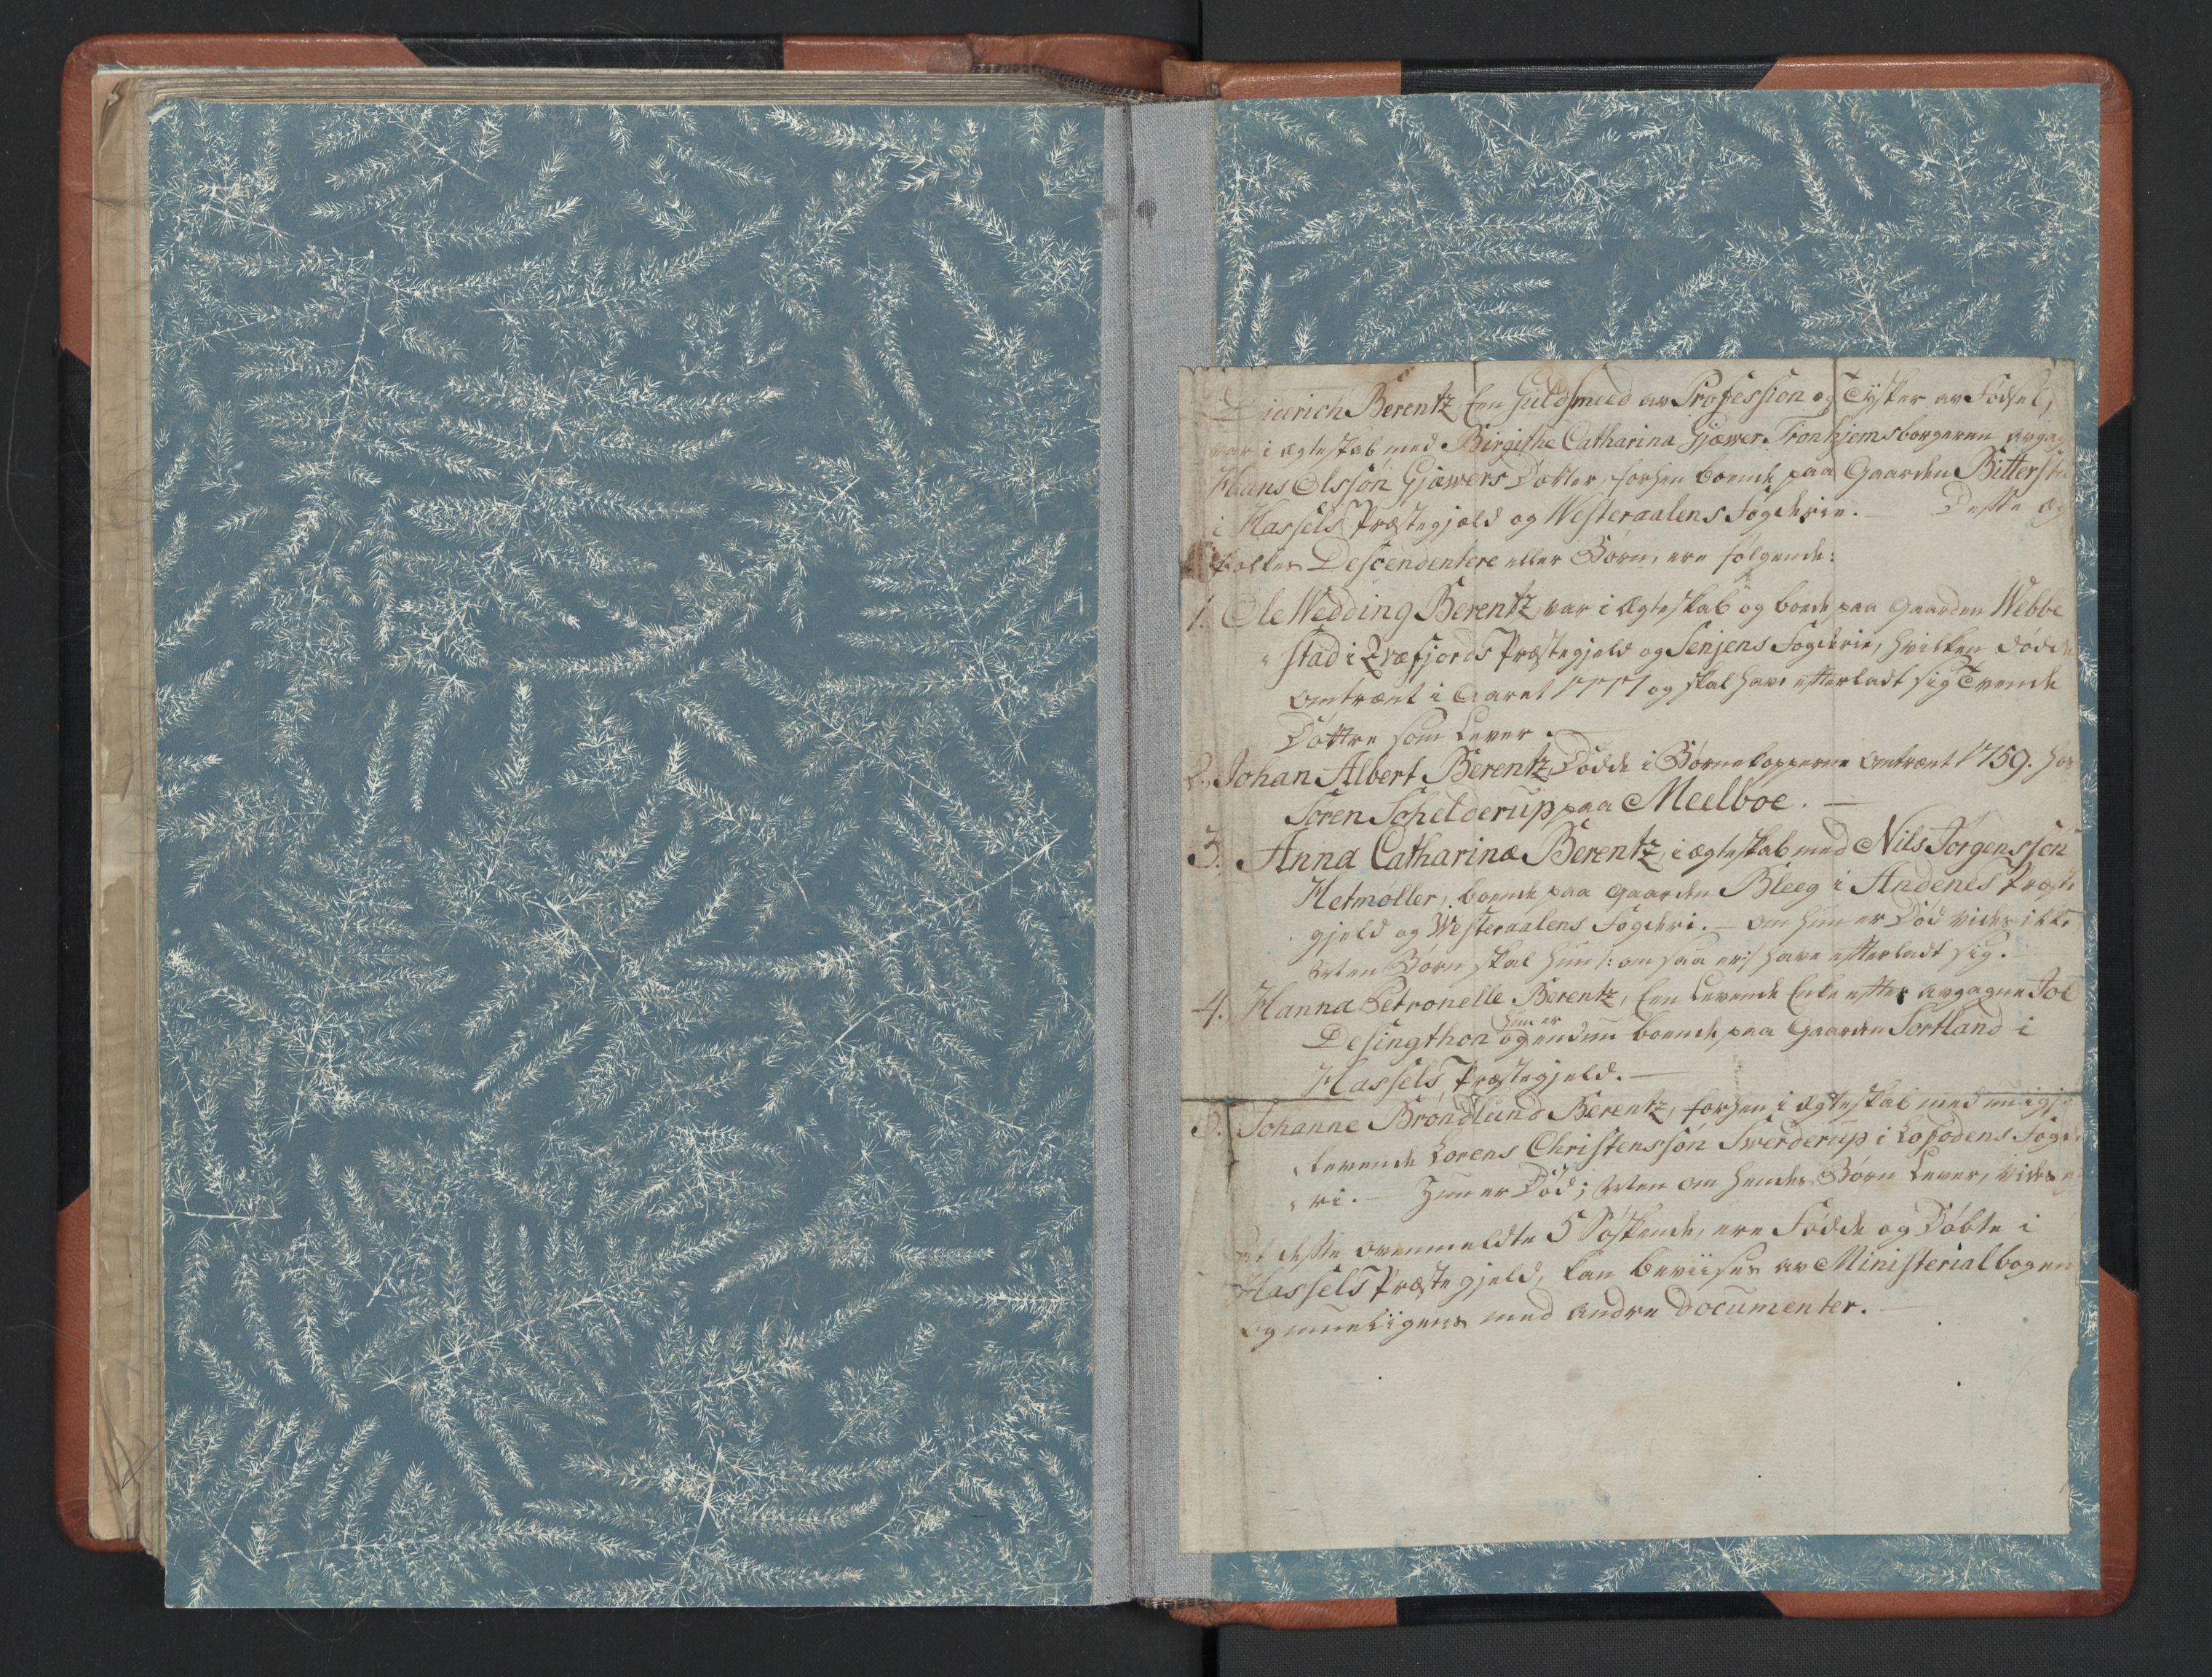 Diderich Berentz, Een Guldsmed av Profession og Tÿsker av Fødsel,
var i ægteskab med Birgithe Catharina Gjæwer, Tronhjemsborgeren avgag
Hans Olssøn Gjæwers Datter, forhen boende paa Gaarden Bitterst
i Hassels Præstegjæld og Westeraalens Fogderie. — Dette æg
folkes Descendentere eller Børn, ere følgende:
1. Ole Wedding Berentz, var i ægteskab og boede paa Gaarden Webbe
stad i Qvæfjords Præstegjeld og Senjens Fogderie, hvilken døde
omtrænt i Aaret 1771 og skal have efterladt sig Tvende
Døttre som Lever.
2. Johan Albert Berentz, Døde i Børnekopperne omtrænt 1759. hos
Søren Schelderup paa Meelboe. —
3. Anna Catharina Berentz, i ægteskab med Nils Jørgenssøn
Hetmøller, boende paa Gaarden Bleeg i Andenes Præste
gjeld og Westeraalens Fogderi. — om hun er Død vides ikke
Men Børn skal hun /: om saa er :/ have efterladt sig.
4. Hanna Petronelle Berentz, Een Levende Enke efter avgagne Joe
Desingthon og hun er endnu boende paa Gaarden Sortland i
Hassels Præstegjeld. —
5. Johanne Brøndlund Berentz, forhen i ægteskab med nu igj
levende Lorens Christenssøn Swerderup i Lofodens Fogde
ri. — Hun er Død; Men om hendes Børn Lever, vides
at disse ovenmeldte 5 Søskende, ere Fødde og Døbte i
Hassels Præstegjeld, kan beviises av Ministerialbogen
og mueligens med andre Documenter. —